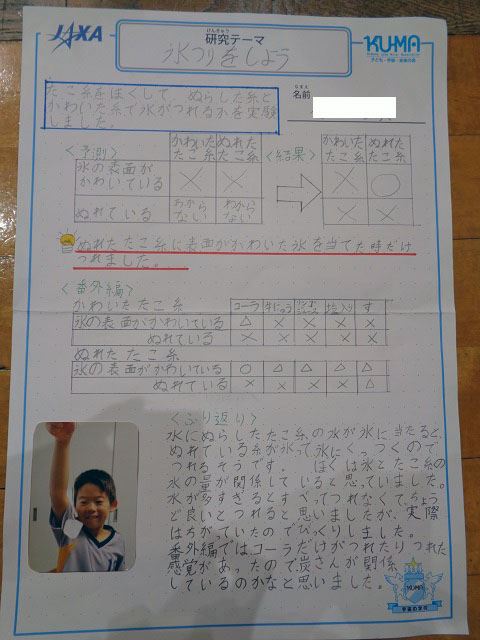 JAXA
けんきゅう
研究テーマ
氷つりをしよう
KU-MA
子ども・宇宙・未来の会
なまえ
名前
たこ糸をほぐして ぬらした糸と
かわいた糸で氷がつれるかを実験
しました。
<予測>
かわいた たこ糸
ぬれた たこ糸
氷の表面が かわいている
×
×
ぬれている
わからない
わからない
<結果>
かわいた たこ糸
ぬれた たこ糸
×
○
×
×
ぬれたたこ糸に表面がかわいた氷を当てた時だけ
つれました。
<番外編>
かわいたたこ糸
コーラ 牛にゅう 塩入り す
氷の表面がかわいている △ × × × ×
ぬれている × × × × ×
ぬれたたこ糸
氷の表面がかわいている ○ △ △ △ △
ぬれている × × × × △
<ふり返り>
水にぬらしたたこ糸の水が氷に当たると、
ぬれている糸が氷って氷にくっつくので
つれるそうです。 ぼくは氷とたこ糸の
水の量が関係していると思っていました。
水が多すぎるとすべってつれなくてちょう
ど良いとつれると思いましたが、実際
はちがっていたのでびっくりしました。
番外編ではコーラだけがつれたりつれた
感覚があったので炭さんが関係
しているのかなと思いました。
KU-MA
宇宙の学校